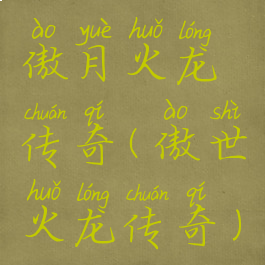 ào yuè huǒ lóng
傲月火龙
chuán qí ào shì
传奇(傲世
huǒ lóng chuán qí
火龙传奇)